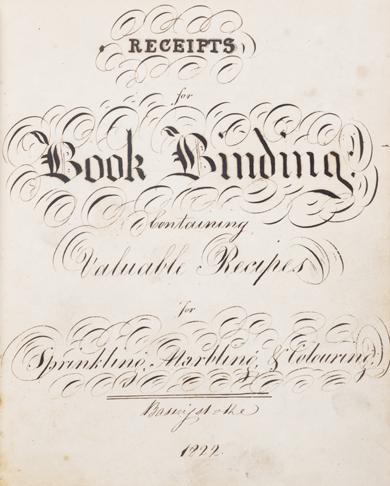 RECEIPTS
for
Book Binding:
Containing
Valuable Recipes
for
Sprinkling, Marbling, & Colouring,
Basingstoke
1822.